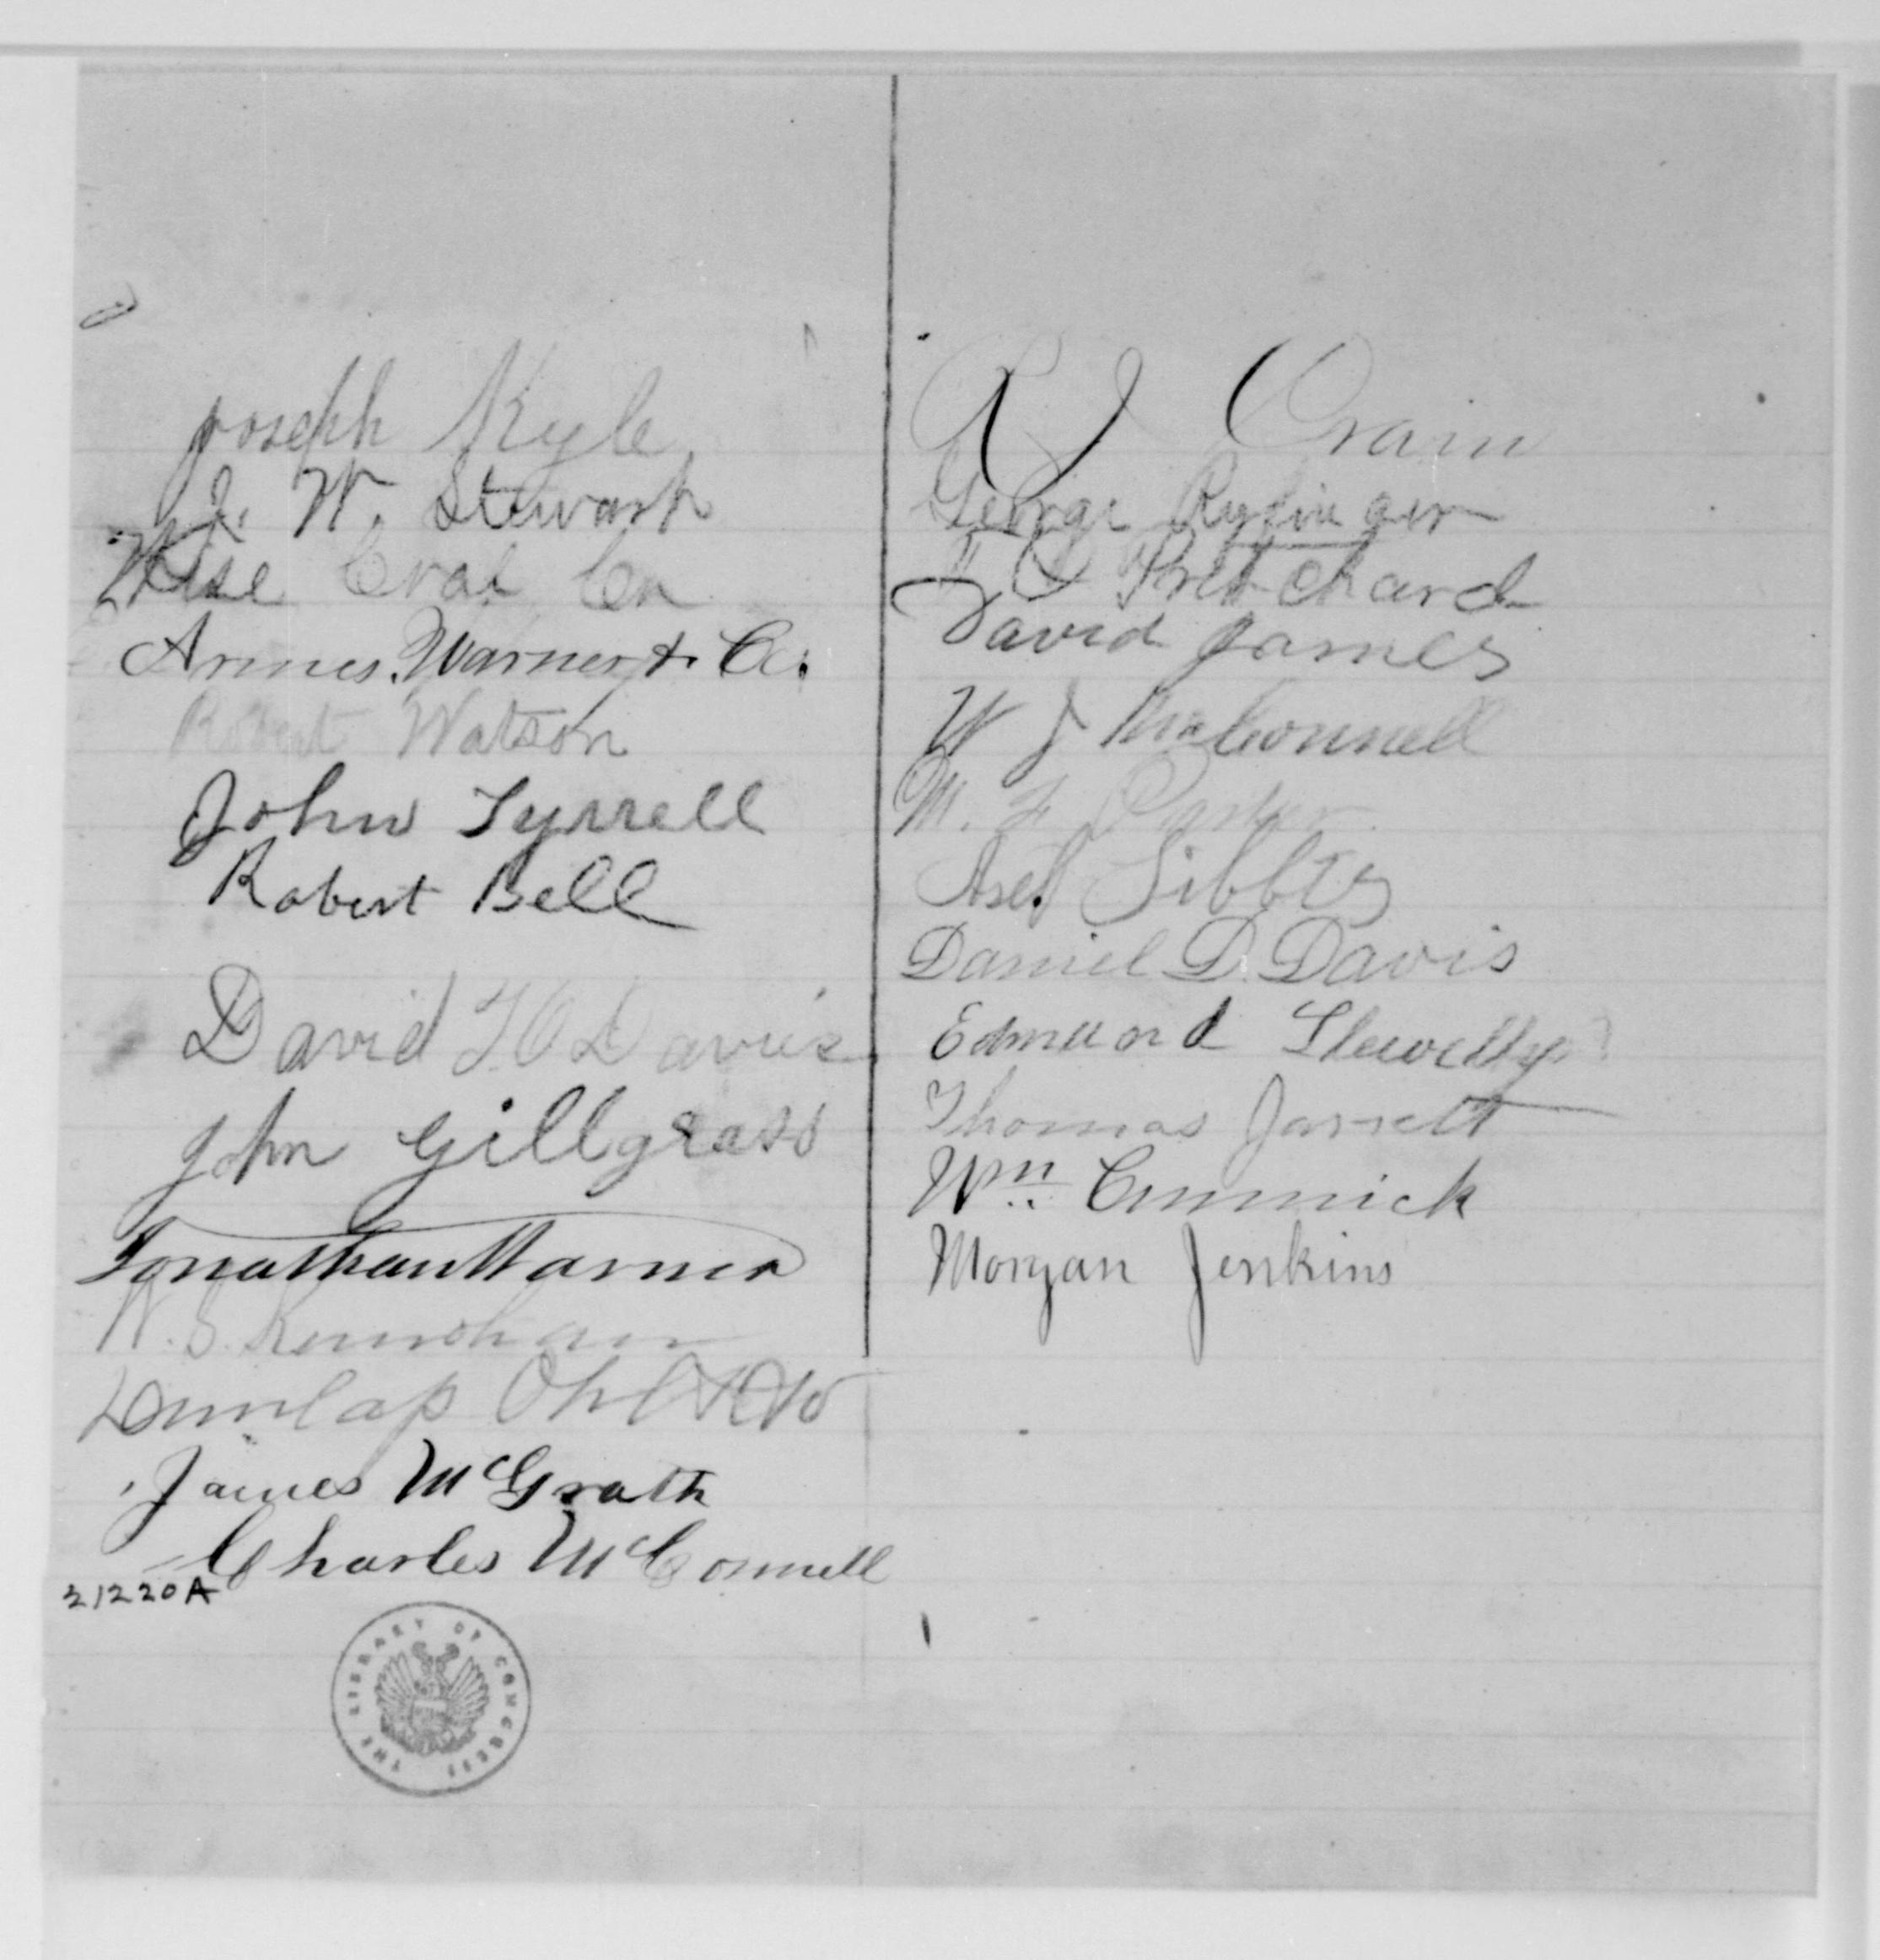 Joseph Kyle
J. W. Stewart
Wise Coal Co
Armes. Warner & Co.
Robert Watson
John Tyrrell
Robert Bell
David H O Davies
John Gillgrass
Jonathan Warner
W. S.
Dunlap Ohl & Co
James McGrath
Charles McConnell
21220A
THE LIBRARY OF CONGRESS
R J Crain
George
Pritchard
David James
W J McConnell
M. F.
Sibbly
Daniel D. Davis
Edmund Llewellyn
Thomas Jarrett
Wm Cummick
Morgan Jenkins